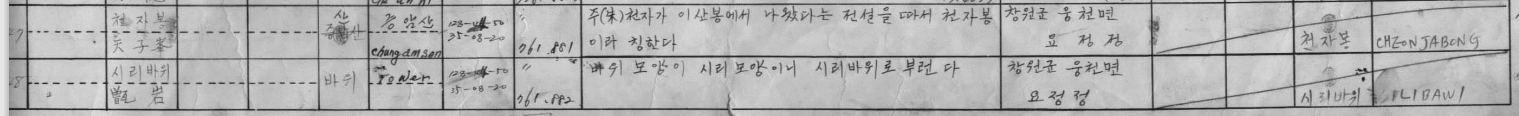 27 천자봉 산 장암산 128-44-50 주(朱)천자가 이산봉에서 나왔다는 전설을 따서 천자봉 창원군 웅천면
天子峯 chang am san 35-08-20 761.881 이라 칭한다 요정정 천자봉 CHEONJABONG
28 시리바위 바위 Tower 128-44-50 〃 바위 모양이 시리모양이니 시리바위로 부런다 창원군 웅천면
甑岩 35-08-20 761.882 요정정 시리바위 ILIBAWI